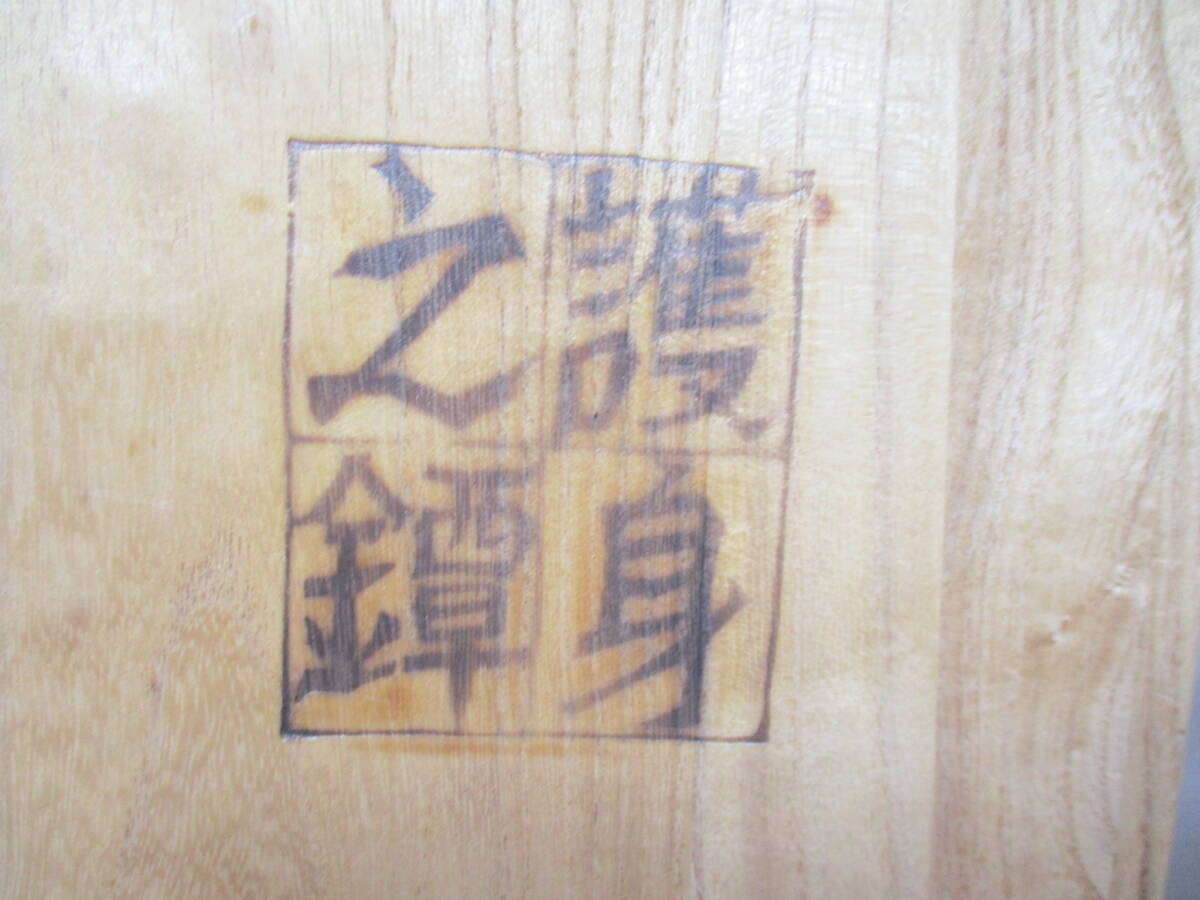 護身
之鐔